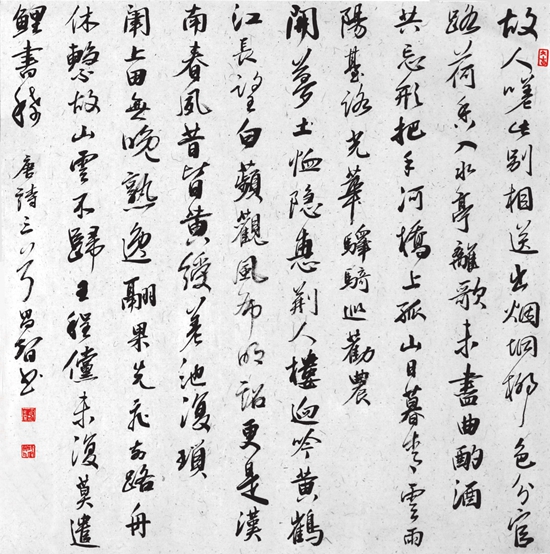 故人嗟此别相送出烟坰柳色分官
路荷香入水亭離歌未盡曲酌酒
共忘形把手河橋上孤山日暮青雲雨
陽臺路光華驛騎巡勸農
開夢土恤隱惠荆人樓迥吟黄鶴
江長望白蘋觀風布明詔更是漢
南春風昔皆黄綬差池復瑣
闈上田無晚熟逸翮果先飛前路舟
休繫故山雲不歸王程儻未復莫遣
鯉書稀唐詩三首昌智書